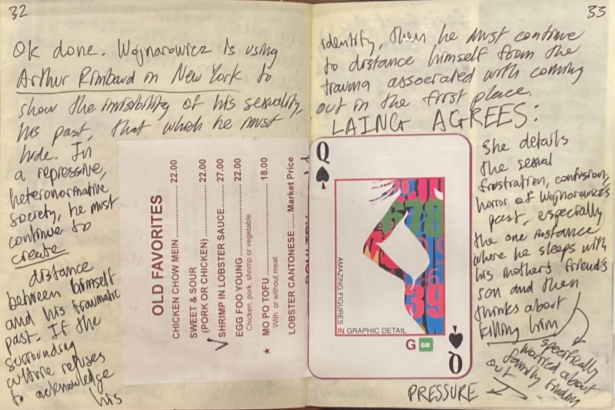 32
OK done. Wojnarowicz is using
Arthur Rimbaud in New York to
show the invisibility of his sexuality,
his past, that which he must
hide. In
a repressive,
heteronormative
society, he must
continue to
create
distance
between himself
and his traumatic
past. If the
surrounding
culture refuses
to acknowledge
his
OLD FAVORITES
CHICKEN CHOW MEIN 22.00
SWEET & SOUR
(PORK OR CHICKEN) 22.00
✓ SHRIMP IN LOBSTER SAUCE 27.00
EGG FOO YOUNG 22.00
Chicken, pork, shrimp or vegetable
★ MO PO TOFU 18.00
With or without meat
LOBSTER CANTONESE Market Price
33
identity, then he must continue
to distance himself from the
trauma associated with coming
out in the first place.
LAING AGREES:
Q
AMAZING FIGURES
IN GRAPHIC DETAIL
G
Q
She details
the sexual
frustration, confusion,
horror of Wojnarowicz's
past, especially
the one instance
where he sleeps with
his mother's friend's
son and then
thinks about
killing him
specifically
worried about
family finding
out
PRESSURE